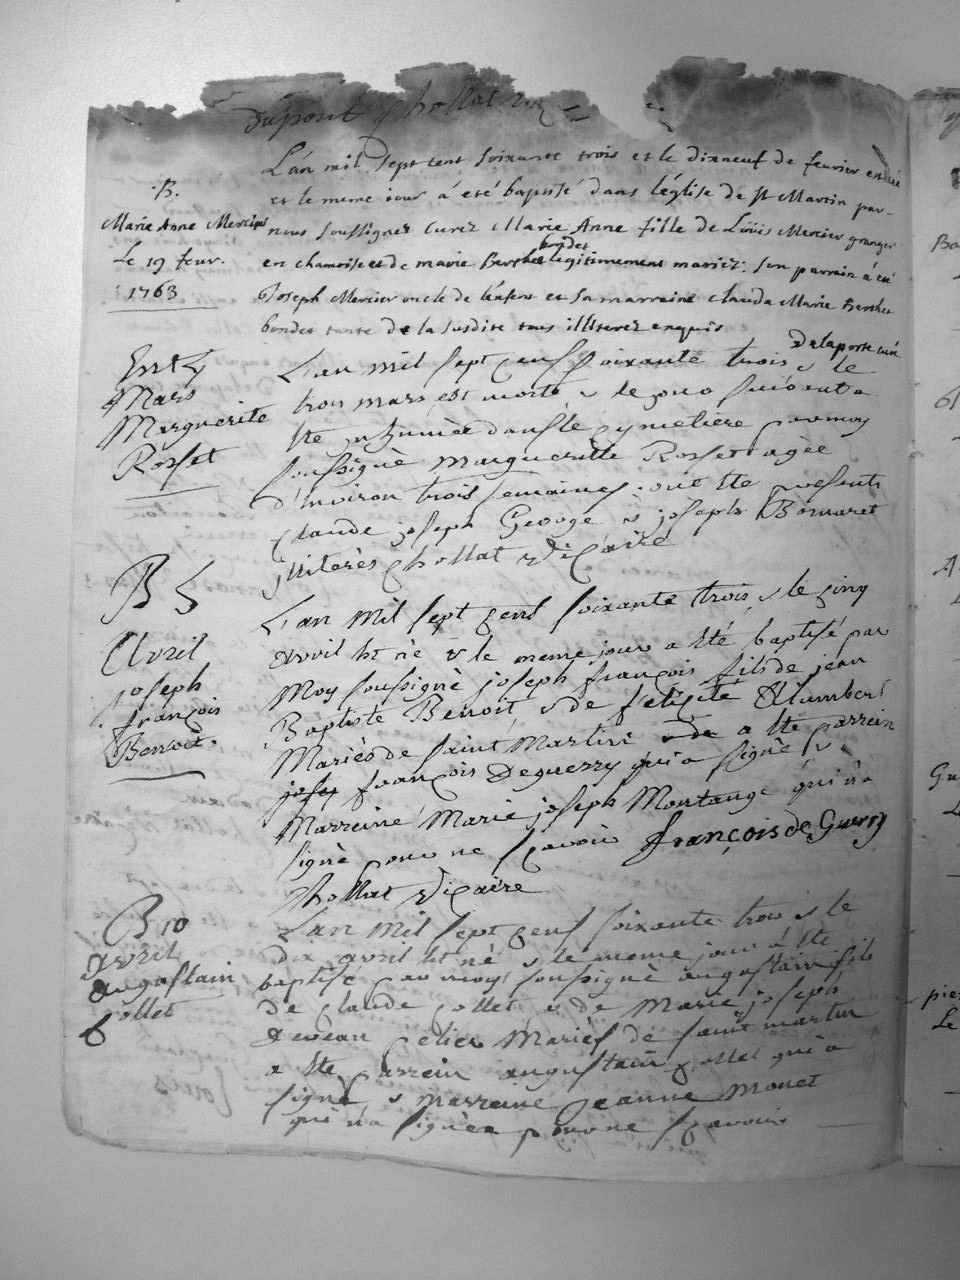 dupont Chollat vic
B.
Marie Anne Mercier
Le 19 feur.
1763
L'an mil sept cent soixante trois et le dixneuf de feurier est née
et le meme iour á eté baptisé dans l'église de st Martin par
nous soussignez curez Marie Anne fille de Loüis Mercier granger
en chamoise et de marie Berthet bondet legitimement mariez. son parrain á eté
Joseph Mercier oncle de l'enfent et sa marraine clauda Marie Berthet
bondet tante de la susdite tous illiterez enquis
Delaporte curé
Ent 4
Mars
Marguerite
Rosset
L'an mil sept cens soixante trois & le
trois mars est morte & le jour suivent a
ete inhumée dans le cymetiere par moy
soussignè margueritte Rosset agèe
d'environ trois semaines. ont ete presents
Claude joseph George & joseph Bornaret
illiterès Chollat Vicaire
B 5
Avril
joseph
françois
Benoit.
L'an mil sept cens soixante trois & le cinq
avril est né & le meme jour a eté baptisé par
Moy soussignè joseph françois fils de jean
Baptiste Benoit & de felicité Alumbert
Mariès de saint Martin a eté parrein
josep françois Deguerry qui a signè &
Marreine Marie joseph Montange qui n'a
signè pour ne scavoir françois de Guerry
Chollat Vicaire
B 10
avril
augustain
Collet
L'an mil sept cens soixante trois & le
dix avril est né & le meme jour a ete
baptisé par moy soussignè augustain fils
de Claude Collet & de Marie joseph
Mariés de saint martin
a ete parrein augustain Collet qui a
signé & marreine jeanne Monet
qui n'a signèe pour ne scavoir